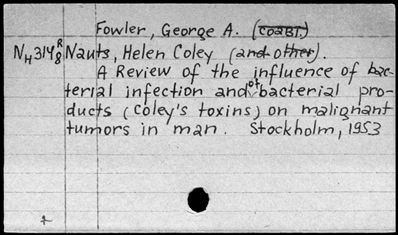 Fowler, George A. (COABT.)
NH3148R Nauts, Helen Coley (and other).
A Review of the influence of bac-
terial infection and of bacterial pro-
ducts (Coley's toxins) on malignant
tumors in man. Stockholm, 1953